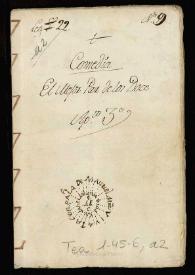 Leg.º 22
Nº 9
a2
+
Comedia
El Mejor Par de los Doce
Apto 3º
Tea 1-45-6, a2